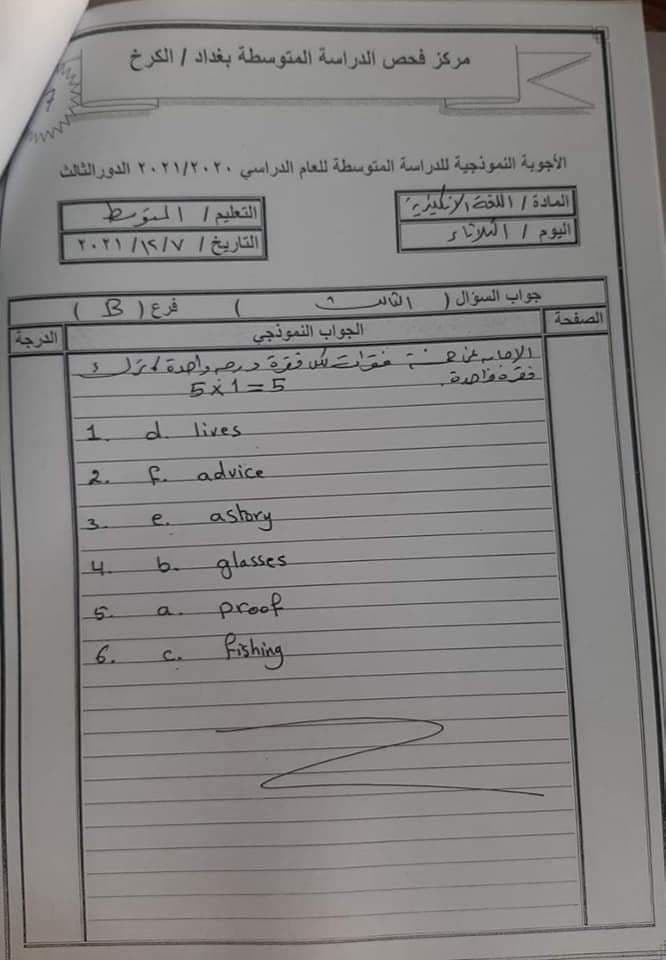 مركز فحص الدراسة المتوسطة بغداد / الكرخ
الأجوبة النموذجية للدراسة المتوسطة للعام الدراسي ٢٠٢١/٢٠٢٠ الدور الثالث
المادة / اللغة الانكليزية
التعليم / المتوسط
اليوم / الثلاثاء
التاريخ / ٢٠٢١/١٢/٧
جواب السؤال ( الثالث ) فرع ( B )
الصفحة الجواب النموذجي الدرجة
الاجابه عن خمسة فقرات لكل فقرة درجه واحدة
فقرة واحدة.
5x1=5
1. d. lives
2. f. advice
3. e. astory
4. b. glasses
5. a. proof
6. c. fishing